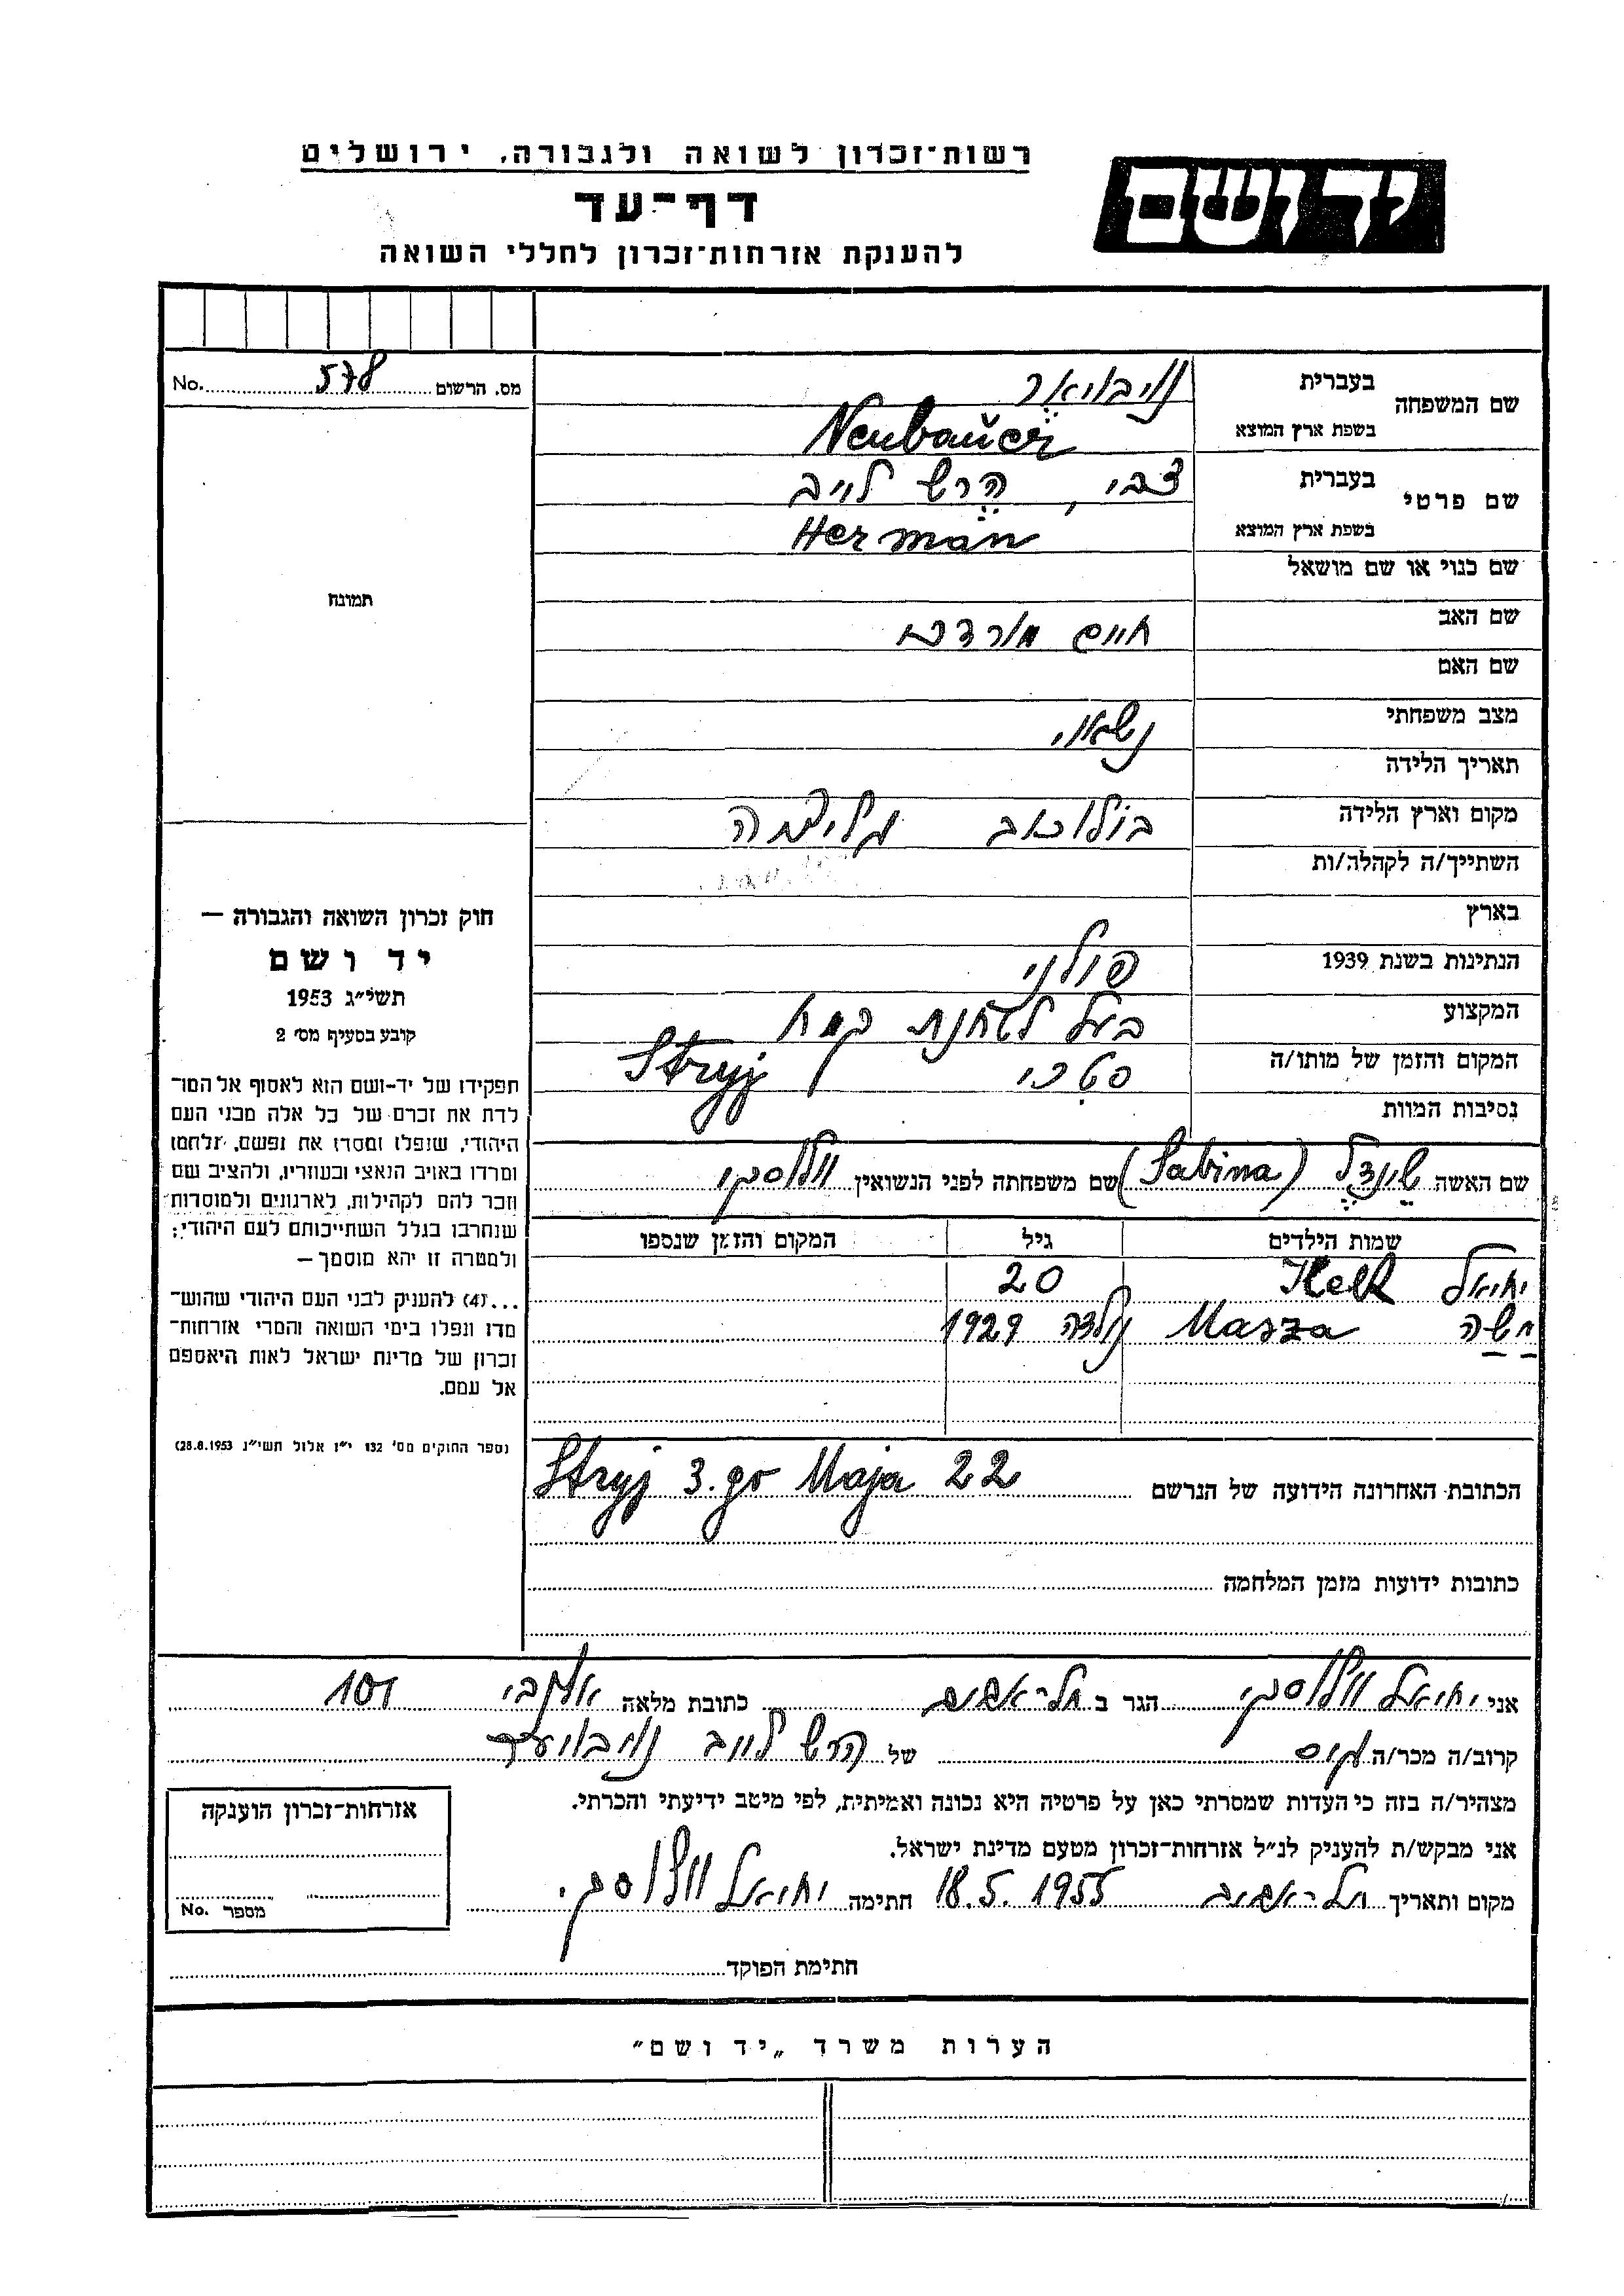 רשות־זכרון לשואה ולגבורה, ירושלים
יד ושם
דף־עד
להענקת אזרחות־זכרון לחללי השואה
מס. הרשום 578 No.
שם המשפחה בעברית נויבויאר
בשפת ארץ המוצא Neubauer
שם פרטי בעברית צבי, הרש לייב
בשפת ארץ המוצא Herman
שם כנוי או שם מושאל
שם האב חיים מרדכי
שם האם
מצב משפחתי נשאוי
תאריך הלידה
מקום וארץ הלידה בולוכאב גליציה
השתייך/ה לקהלה/ות
בארץ
הנתינות בשנת 1939 פולני
המקצוע בעל לטחנת קמח
המקום והזמן של מותו/ה סטרי Stryj
נסיבות המוות
שם האשה שינדל (Sabina) שם משפחתה לפני הנשואין
שמות הילדים גיל המקום והזמן שנספו
יחיאל 20
משה Masza נולדה 1929
הכתובת האחרונה הידועה של הנרשם Stryj 3.go Maja 22
כתובות ידועות מזמן המלחמה
תמונה
חוק זכרון השואה והגבורה —
יד ושם
תשי״ג 1953
קובע בסעיף מס׳ 2
תפקידו של יד־ושם הוא לאסוף אל המו־
לדת את זכרם של כל אלה מבני העם
היהודי, שנפלו ומסרו את נפשם, נלחמו
ומרדו באויב הנאצי ובעוזריו, ולהציב שם
וזכר להם לקהילות, לארגונים ולמוסדות
שנחרבו בגלל השתייכותם לעם היהודי;
ולמטרה זו יהא מוסמך —
...(4) להעניק לבני העם היהודי שהוש־
מדו ונפלו בימי השואה והמרי אזרחות־
זכרון של מדינת ישראל לאות היאספם
אל עמם.
(ספר החוקים מס׳ 132 י״ז אלול תשי״ג 28.8.1953)
אני יחיאל הגר ב תל־אביב כתובת מלאה אלנבי 101
קרוב/ה מכר/ה גיס של הרש לייב נויבויער
מצהיר/ה בזה כי העדות שמסרתי כאן על פרטיה היא נכונה ואמיתית, לפי מיטב ידיעתי והכרתי.
אני מבקש/ת להעניק לנ״ל אזרחות־זכרון מטעם מדינת ישראל.
מקום ותאריך תל־אביב 18.5.1955 חתימה יחיאל
אזרחות־זכרון הוענקה
מספר No.
חתימת הפוקד
הערות משרד „יד ושם״